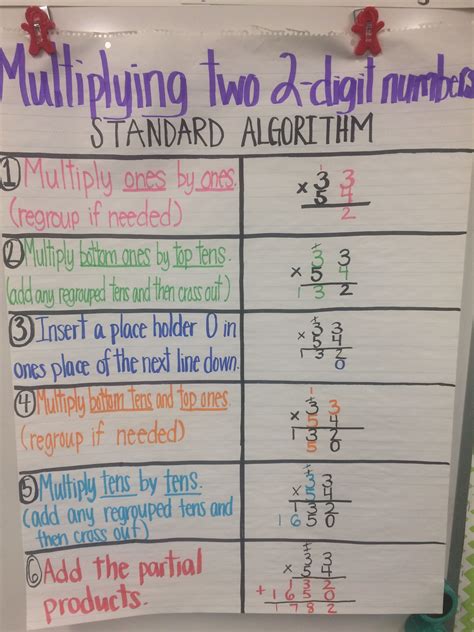 Multiplying two 2-digit numbers
STANDARD ALGORITHM
① Multiply ones by ones.
(regroup if needed)
1
3 3
× 5 4
2
② Multiply bottom ones by top tens.
(add any regrouped tens and then cross out)
1
3 3
× 5 4
1 3 2
③ Insert a place holder 0 in
ones place of the next line down.
1
3 3
× 5 4
1 3 2
0
④ Multiply bottom tens and top ones.
(regroup if needed)
1
3 3
× 5 4
1 3 2
5 0
⑤ Multiply tens by tens.
(add any regrouped tens and
then cross out)
1
3 3
× 5 4
1 3 2
1 6 5 0
⑥ Add the partial
products.
1
3 3
× 5 4
1 3 2
+ 1 6 5 0
1 7 8 2